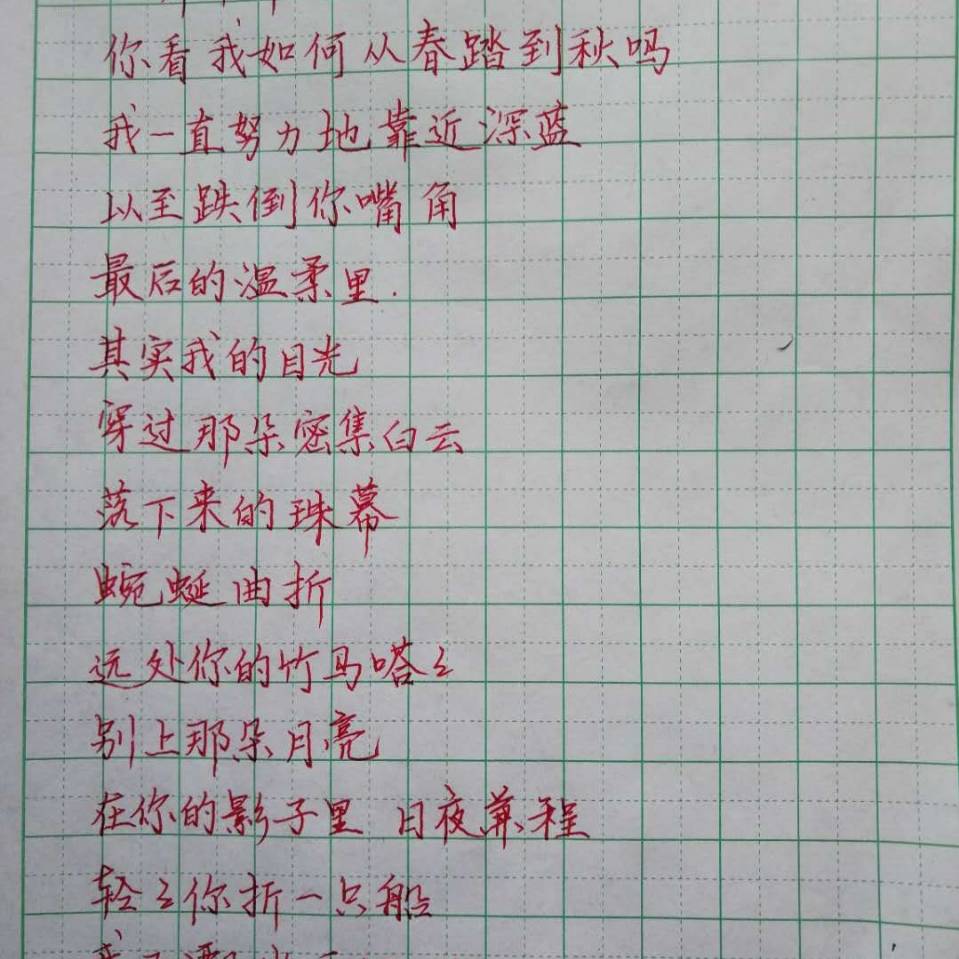 你看我如何从春踏到秋吗
我一直努力地靠近深蓝
以至跌倒你嘴角
最后的温柔里.
其实我的目光
穿过那朵密集白云
落下来的珠幕
蜿蜒曲折
远处你的竹马嗒々
别上那朵月亮
在你的影子里 日夜兼程
轻々你折一只船